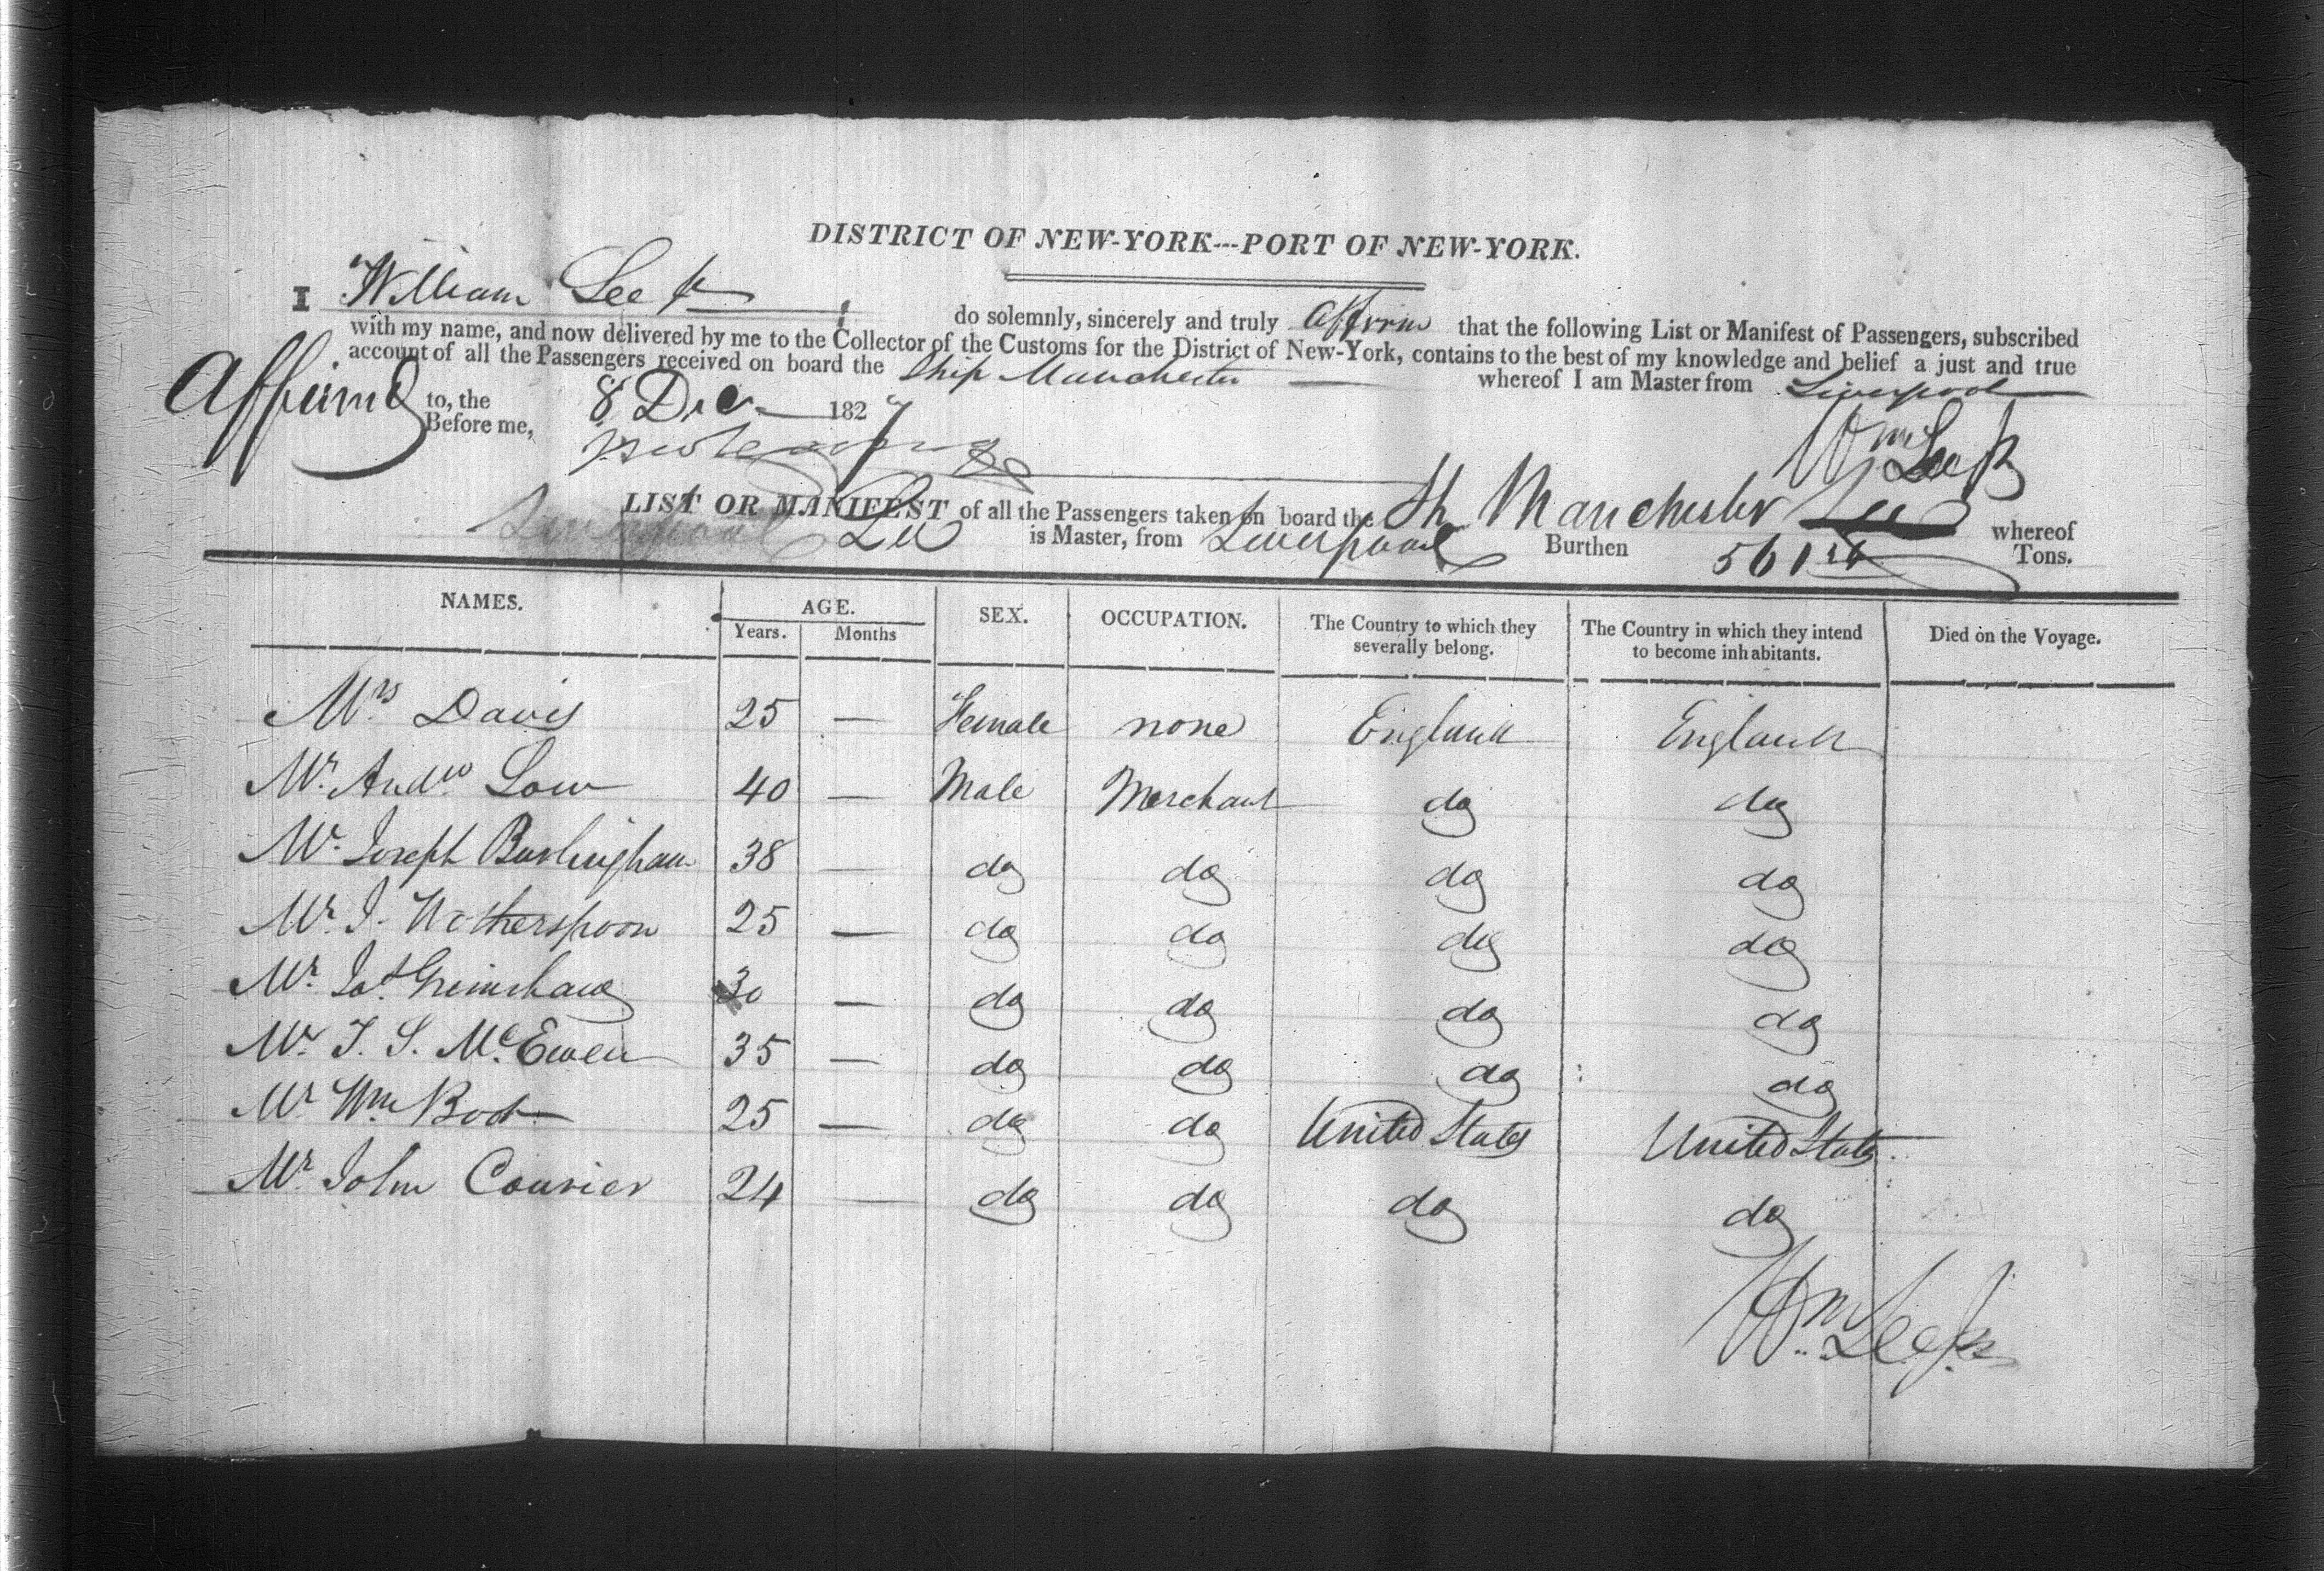 DISTRICT OF NEW-YORK---PORT OF NEW-YORK.
I William Lee Jr do solemnly, sincerely and truly affirm that the following List or Manifest of Passengers, subscribed
with my name, and now delivered by me to the Collector of the Customs for the District of New-York, contains to the best of my knowledge and belief a just and true
account of all the Passengers received on board the Ship Manchester whereof I am Master from Liverpool
Affirmd to, the 8 Dec 1827
Before me,
Wm Lee Jr
LIST OR MANIFEST of all the Passengers taken on board the Sh Manchester Lee whereof
Liverpool Lee is Master, from Liverpool Burthen 561 Tons.
NAMES. AGE. SEX. OCCUPATION. The Country to which they severally belong. The Country in which they intend to become inhabitants. Died on the Voyage.
Years. Months
Mrs Davis 25 — Female none England England
Mr. Andw Low 40 — Male Merchant do do
Mr. Joseph Burlingham 38 — do do do do
Mr. J. Wotherspoon 25 — do do do do
Mr. Jos Grimshaw 30 — do do do do
Mr. T. S. McEwen 35 — do do do do
Mr Wm 25 — do do United States United States
Mr John Courier 24 — do do do do
Wm Lee Jr